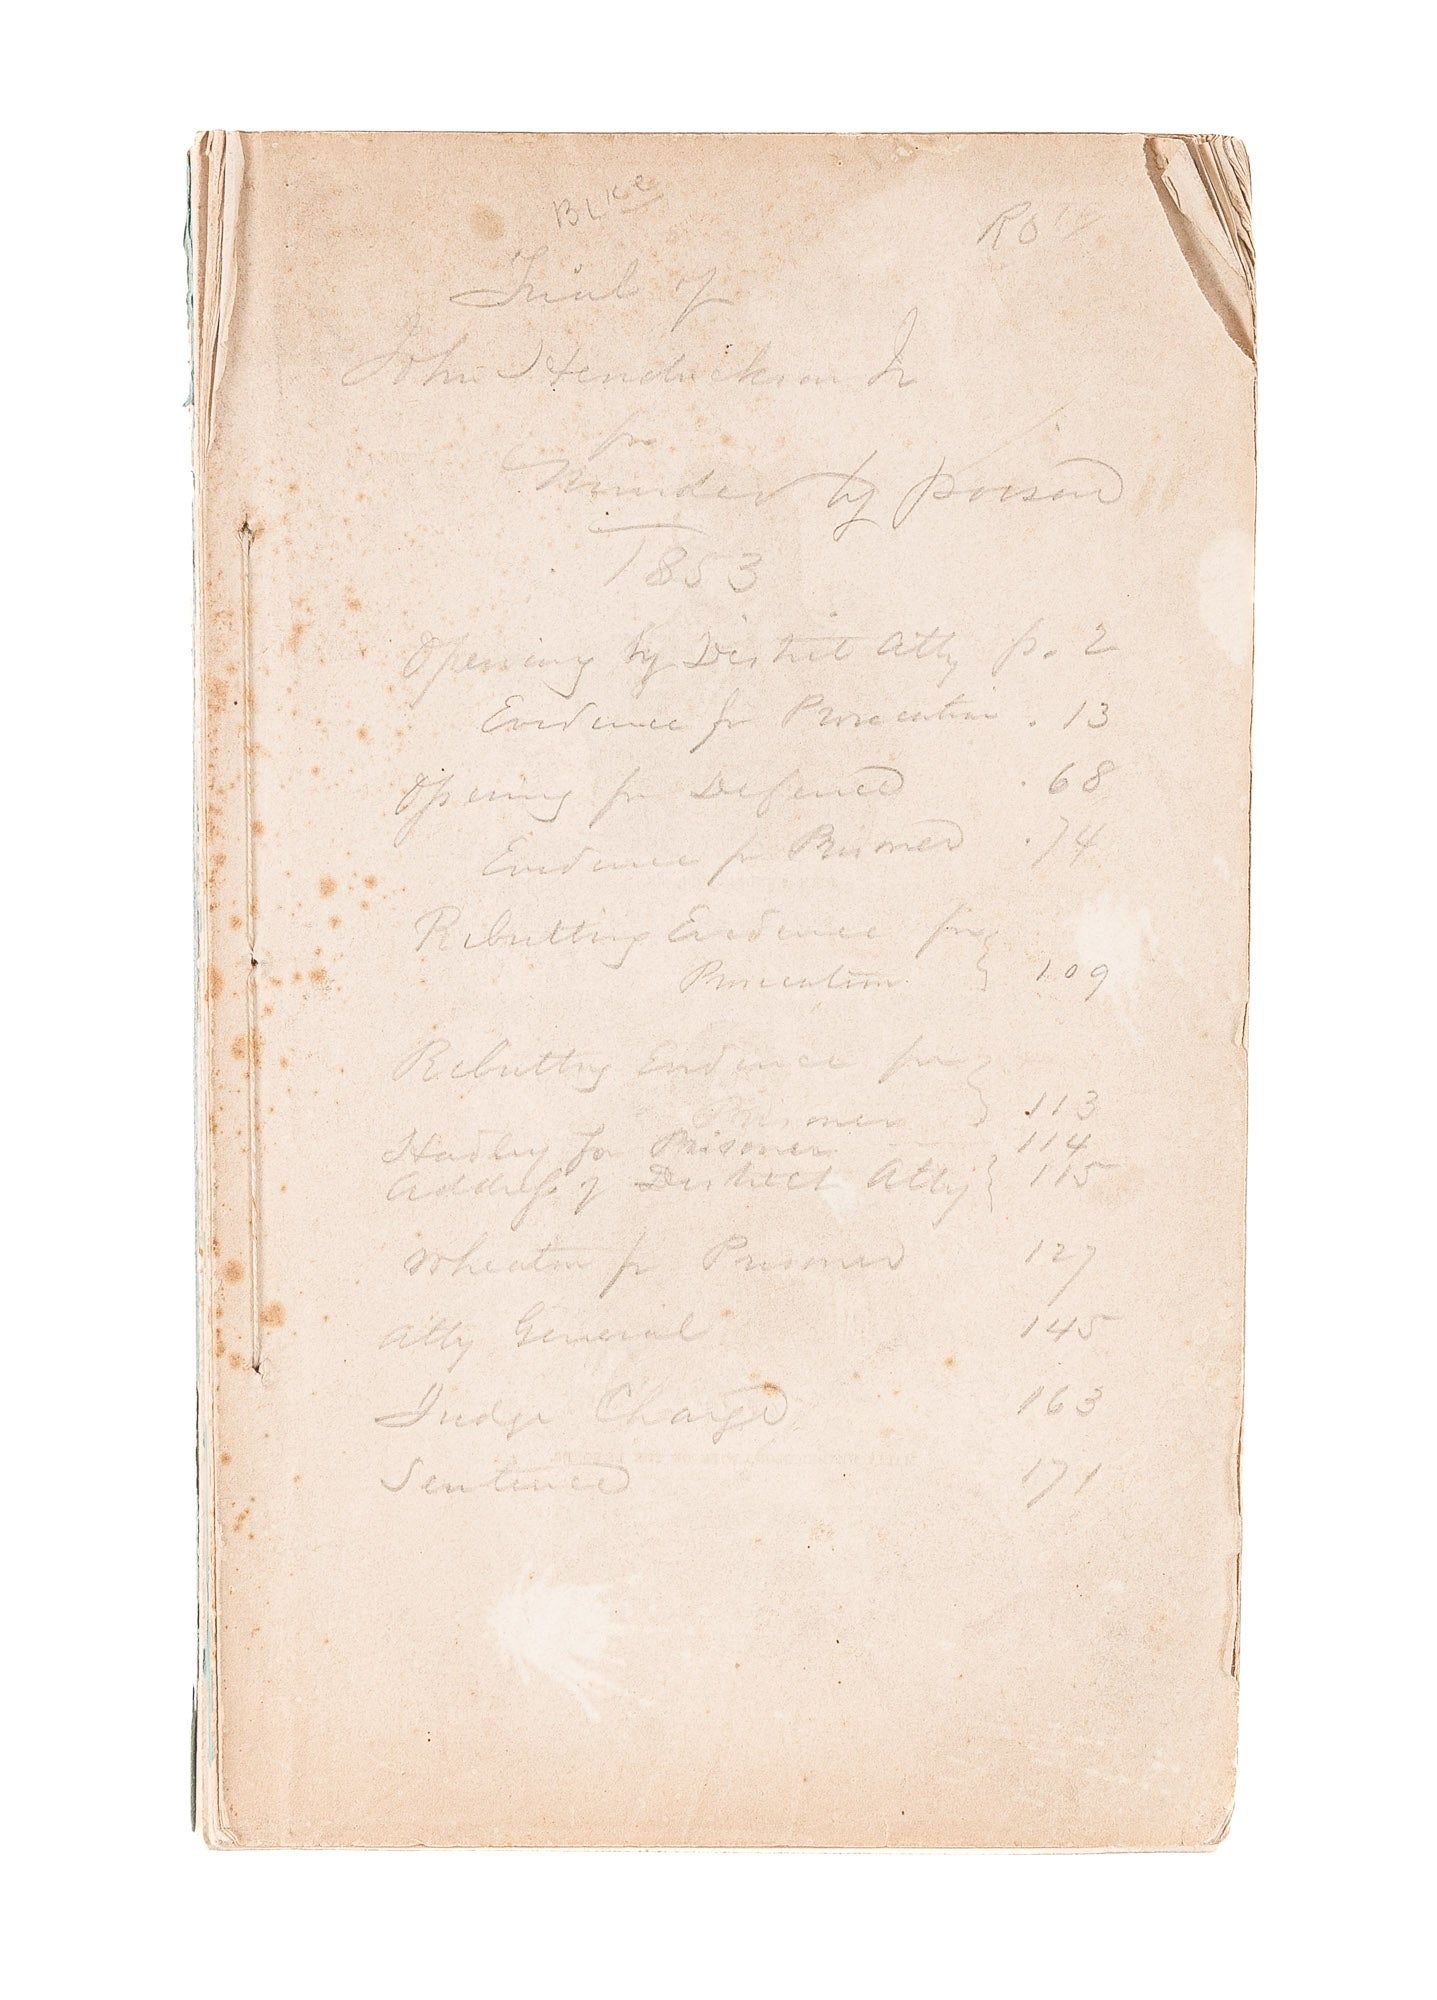 Trial of
John Hendrickson Jr
for
Murder by poison
1853
Opening by District Atty p. 2
Evidence for Prosecution . 13
Opening for Defence . 68
Evidence for Prisoner . 74
Rebutting Evidence for
Prosecution } 109
Rebutting Evidence for
Prisoner } 113
Hadley for Prisoner 114
Address of District Atty } 115
Wheaton for Prisoner 127
Atty General 145
Judge Charge 163
Sentence 171